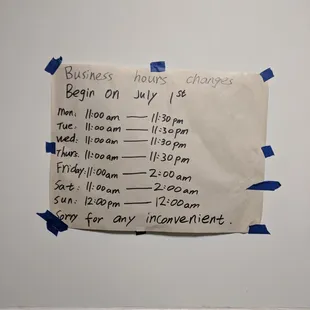 Business hours changes
Begin on July 1st
Mon: 11:00 am — 11:30 pm
Tue: 11:00 am — 11:30 pm
Wed: 11:00 am — 11:30 pm
Thurs: 11:00 am — 11:30 pm
Friday: 11:00 am — 2:00 am
Sat: 11:00 am — 2:00 am
Sun: 12:00 pm — 12:00 am
Sorry for any inconvenient.